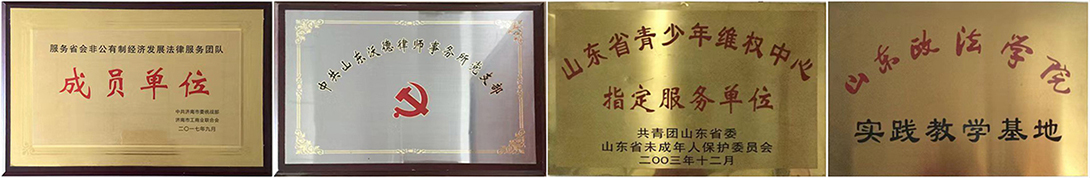 服务省会非公有制经济发展法律服务团队
成员单位
中共济南市委统战部
济南市工商业联合会
二〇一七年九月
中共山东沃德律师事务所党支部
山东省青少年维权中心
指定服务单位
共青团山东省委
山东省未成年人保护委员会
二〇〇三年十二月
山东政法学院
实践教学基地